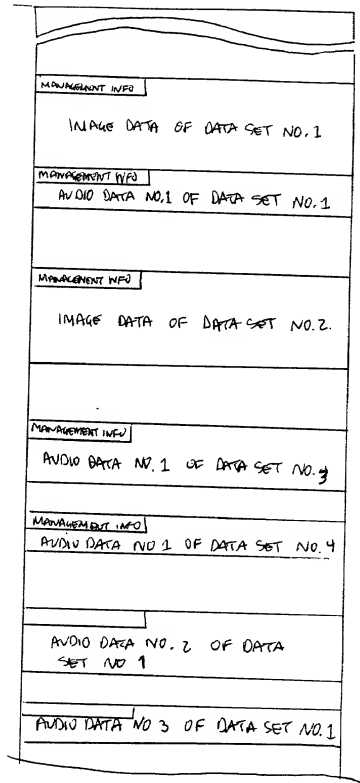 MANAGEMENT INFO
IMAGE DATA OF DATA SET NO. 1
MANAGEMENT INFO
AUDIO DATA NO.1 OF DATA SET NO.1
MANAGEMENT INFO
IMAGE DATA OF DATA SET NO.2.
MANAGEMENT INFO
AUDIO DATA NO. 1 OF DATA SET NO. 3
MANAGEMENT INFO
AUDIO DATA NO 1 OF DATA SET NO. 4
AUDIO DATA NO. 2 OF DATA
SET NO 1
AUDIO DATA NO 3 OF DATA SET NO.1